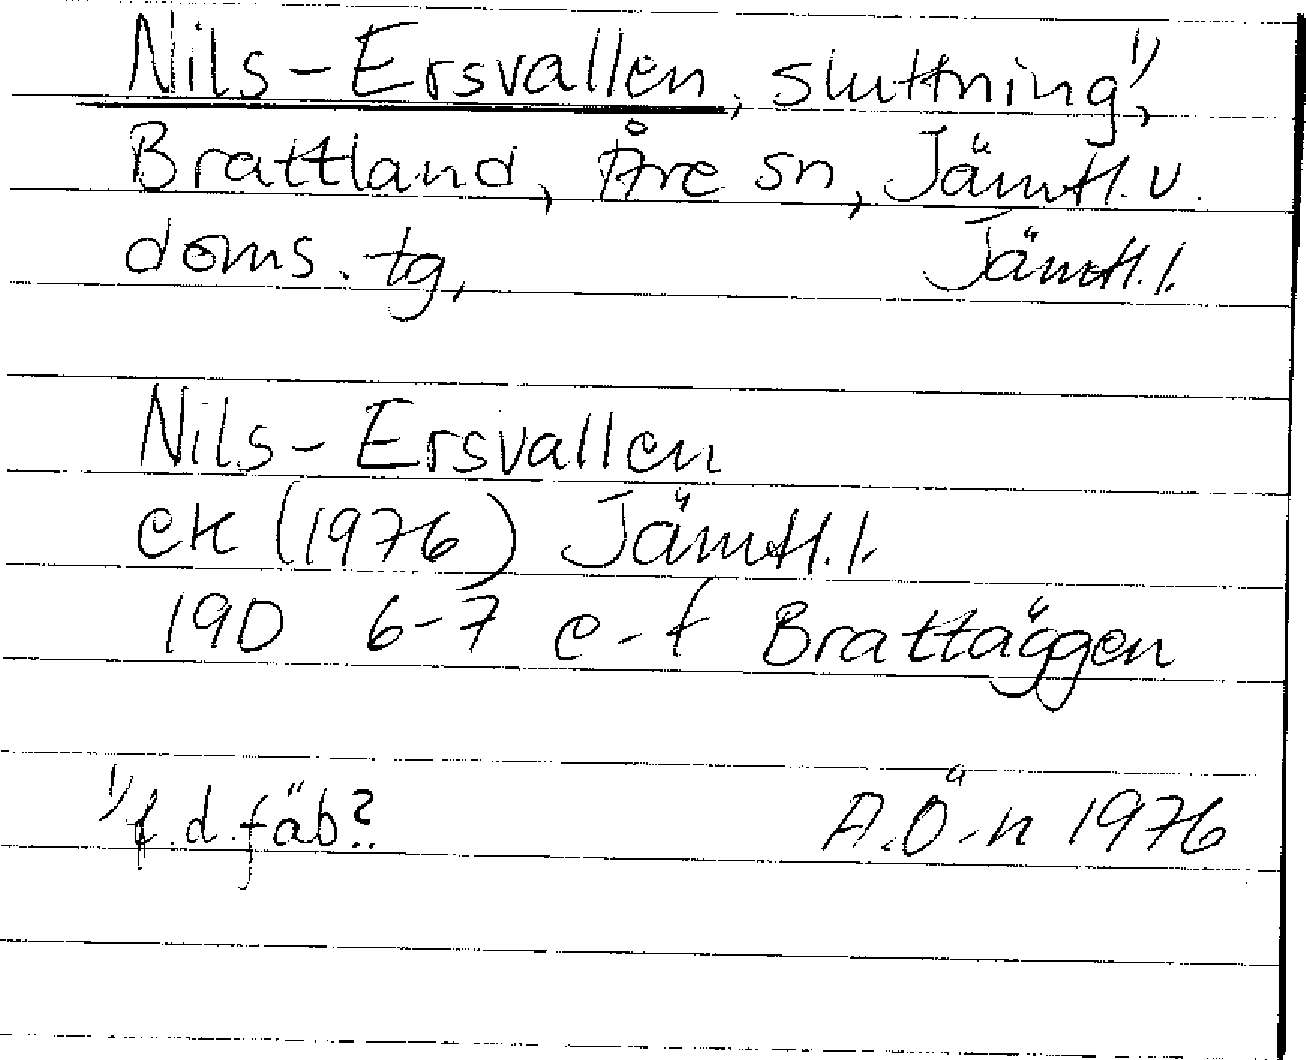 Nils-Ersvallen, sluttning¹⁾,
Brattland, Åre sn, Jämtl. v.
doms. tg, Jämtl. l.
Nils-Ersvallen
ek (1976) Jämtl. l.
19D 6-7 e-f Brattäggen
¹⁾ f.d. fäb?.
A.Ö-n 1976